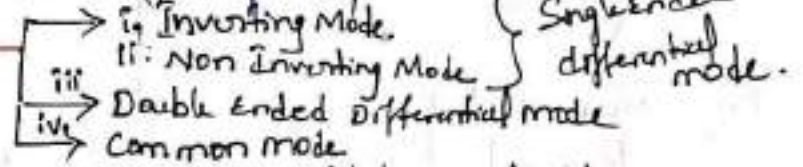 i, Inverting Mode.
ii: Non Inverting Mode
differential
mode.
iii Double Ended Differential mode
iv, Common mode